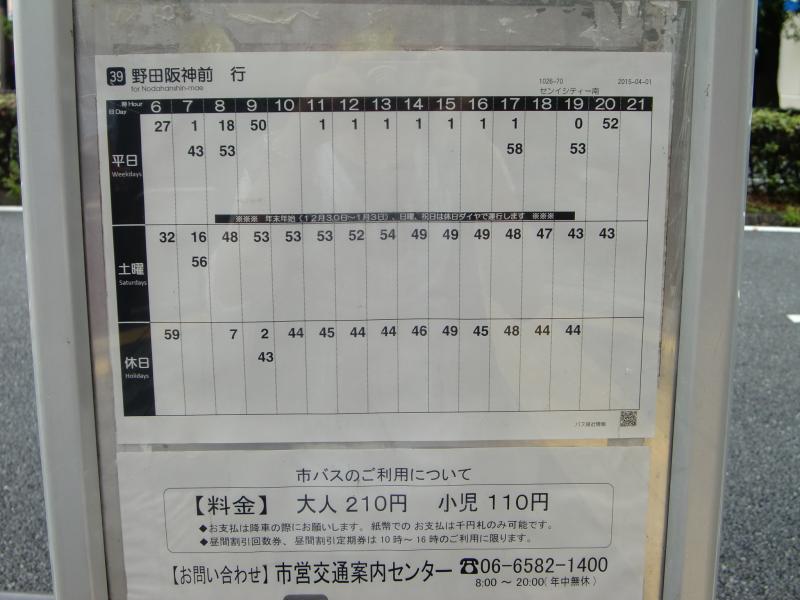 39 野田阪神前 行
for Nodahanshin-mae
1026-70 2015-04-01
センイシティー南
時Hour 6 7 8 9 10 11 12 13 14 15 16 17 18 19 20 21
日Day
平日 27 1 18 50 1 1 1 1 1 1 1 0 52
Weekdays 43 53 58 53
※※※ 年末年始(12月30日～1月3日)、日曜、祝日は休日ダイヤで運行します ※※※
土曜 32 16 48 53 53 53 52 54 49 49 49 48 47 43 43
Saturdays 56
休日 59 7 2 44 45 44 44 46 49 45 48 44 44
Holidays 43
バス接近情報
市バスのご利用について
【料金】 大人 210円 小児 110円
◆お支払は降車の際にお願いします。紙幣での お支払は千円札のみ可能です。
◆昼間割引回数券、昼間割引定期券は 10 時～ 16 時のご利用に限ります。
【お問い合わせ】市営交通案内センター ☎06-6582-1400
8:00 ～ 20:00(年中無休)